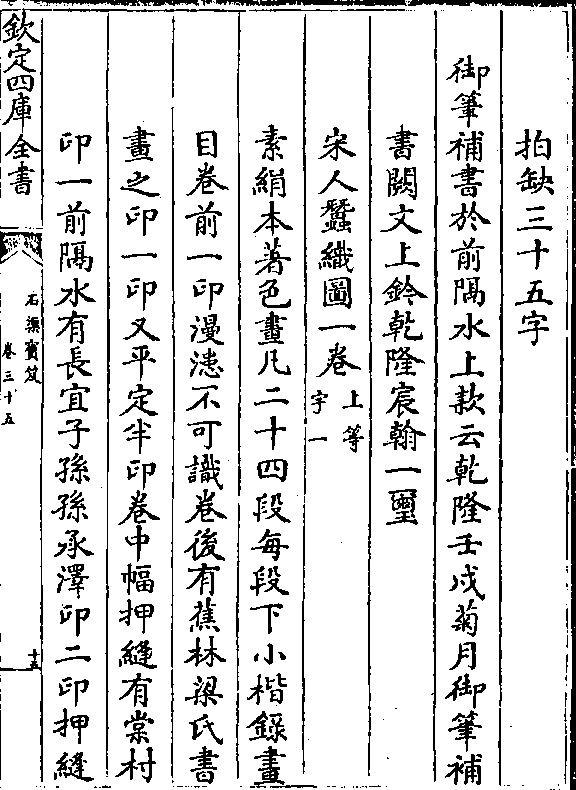 拍缺三十五字
御筆補書於前隔水上款云乾隆壬戌菊月御筆補
書闕文上鈐乾隆宸翰一璽
宋人蠶織圖一卷上等
宇一
素絹本著色畫凡二十四段每段下小楷錄畫
目卷前一印漫漶不可識卷後有蕉林梁氏書
畫之印一印又平定半印卷中幅押縫有棠村
印一前隔水有長宜子孫孫承澤印二印押縫
欽定四庫全書
石渠寳笈
卷三十五
十五